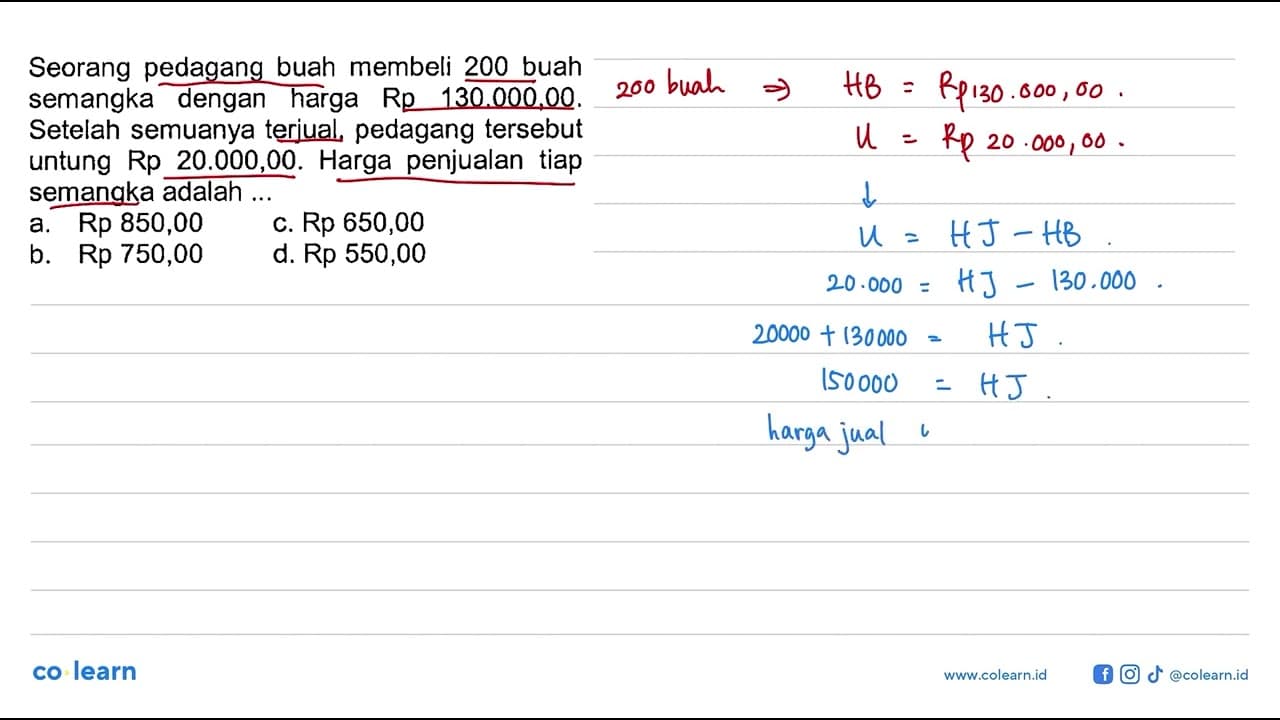 Seorang pedagang buah membeli 200 buah
semangka dengan harga Rp 130.000,00.
Setelah semuanya terjual, pedagang tersebut
untung Rp 20.000,00. Harga penjualan tiap
semangka adalah ...
a. Rp 850,00 c. Rp 650,00
b. Rp 750,00 d. Rp 550,00
200 buah ⇒ HB = Rp130.000,00.
U = Rp 20.000,00.
↓
U = HJ - HB.
20.000 = HJ - 130.000.
20000 + 130000 = HJ.
150000 = HJ.
harga jual
co learn
www.colearn.id
@colearn.id